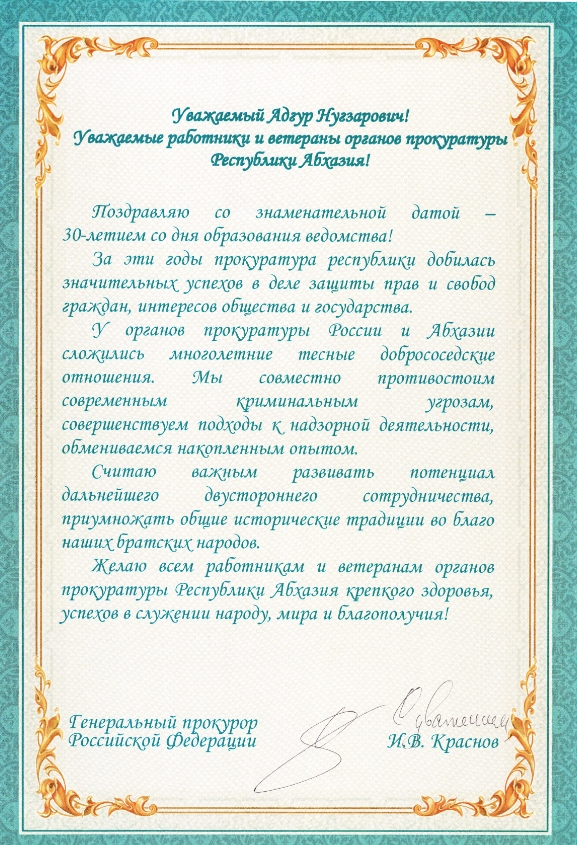 Уважаемый Адгур Нугзарович!
Уважаемые работники и ветераны органов прокуратуры
Республики Абхазия!
Поздравляю со знаменательной датой –
30-летием со дня образования ведомства!
За эти годы прокуратура республики добилась
значительных успехов в деле защиты прав и свобод
граждан, интересов общества и государства.
У органов прокуратуры России и Абхазии
сложились многолетние тесные добрососедские
отношения. Мы совместно противостоим
современным криминальным угрозам,
совершенствуем подходы к надзорной деятельности,
обмениваемся накопленным опытом.
Считаю важным развивать потенциал
дальнейшего двустороннего сотрудничества,
приумножать общие исторические традиции во благо
наших братских народов.
Желаю всем работникам и ветеранам органов
прокуратуры Республики Абхазия крепкого здоровья,
успехов в служении народу, мира и благополучия!
С уважением
Генеральный прокурор
Российской Федерации
И.В. Краснов